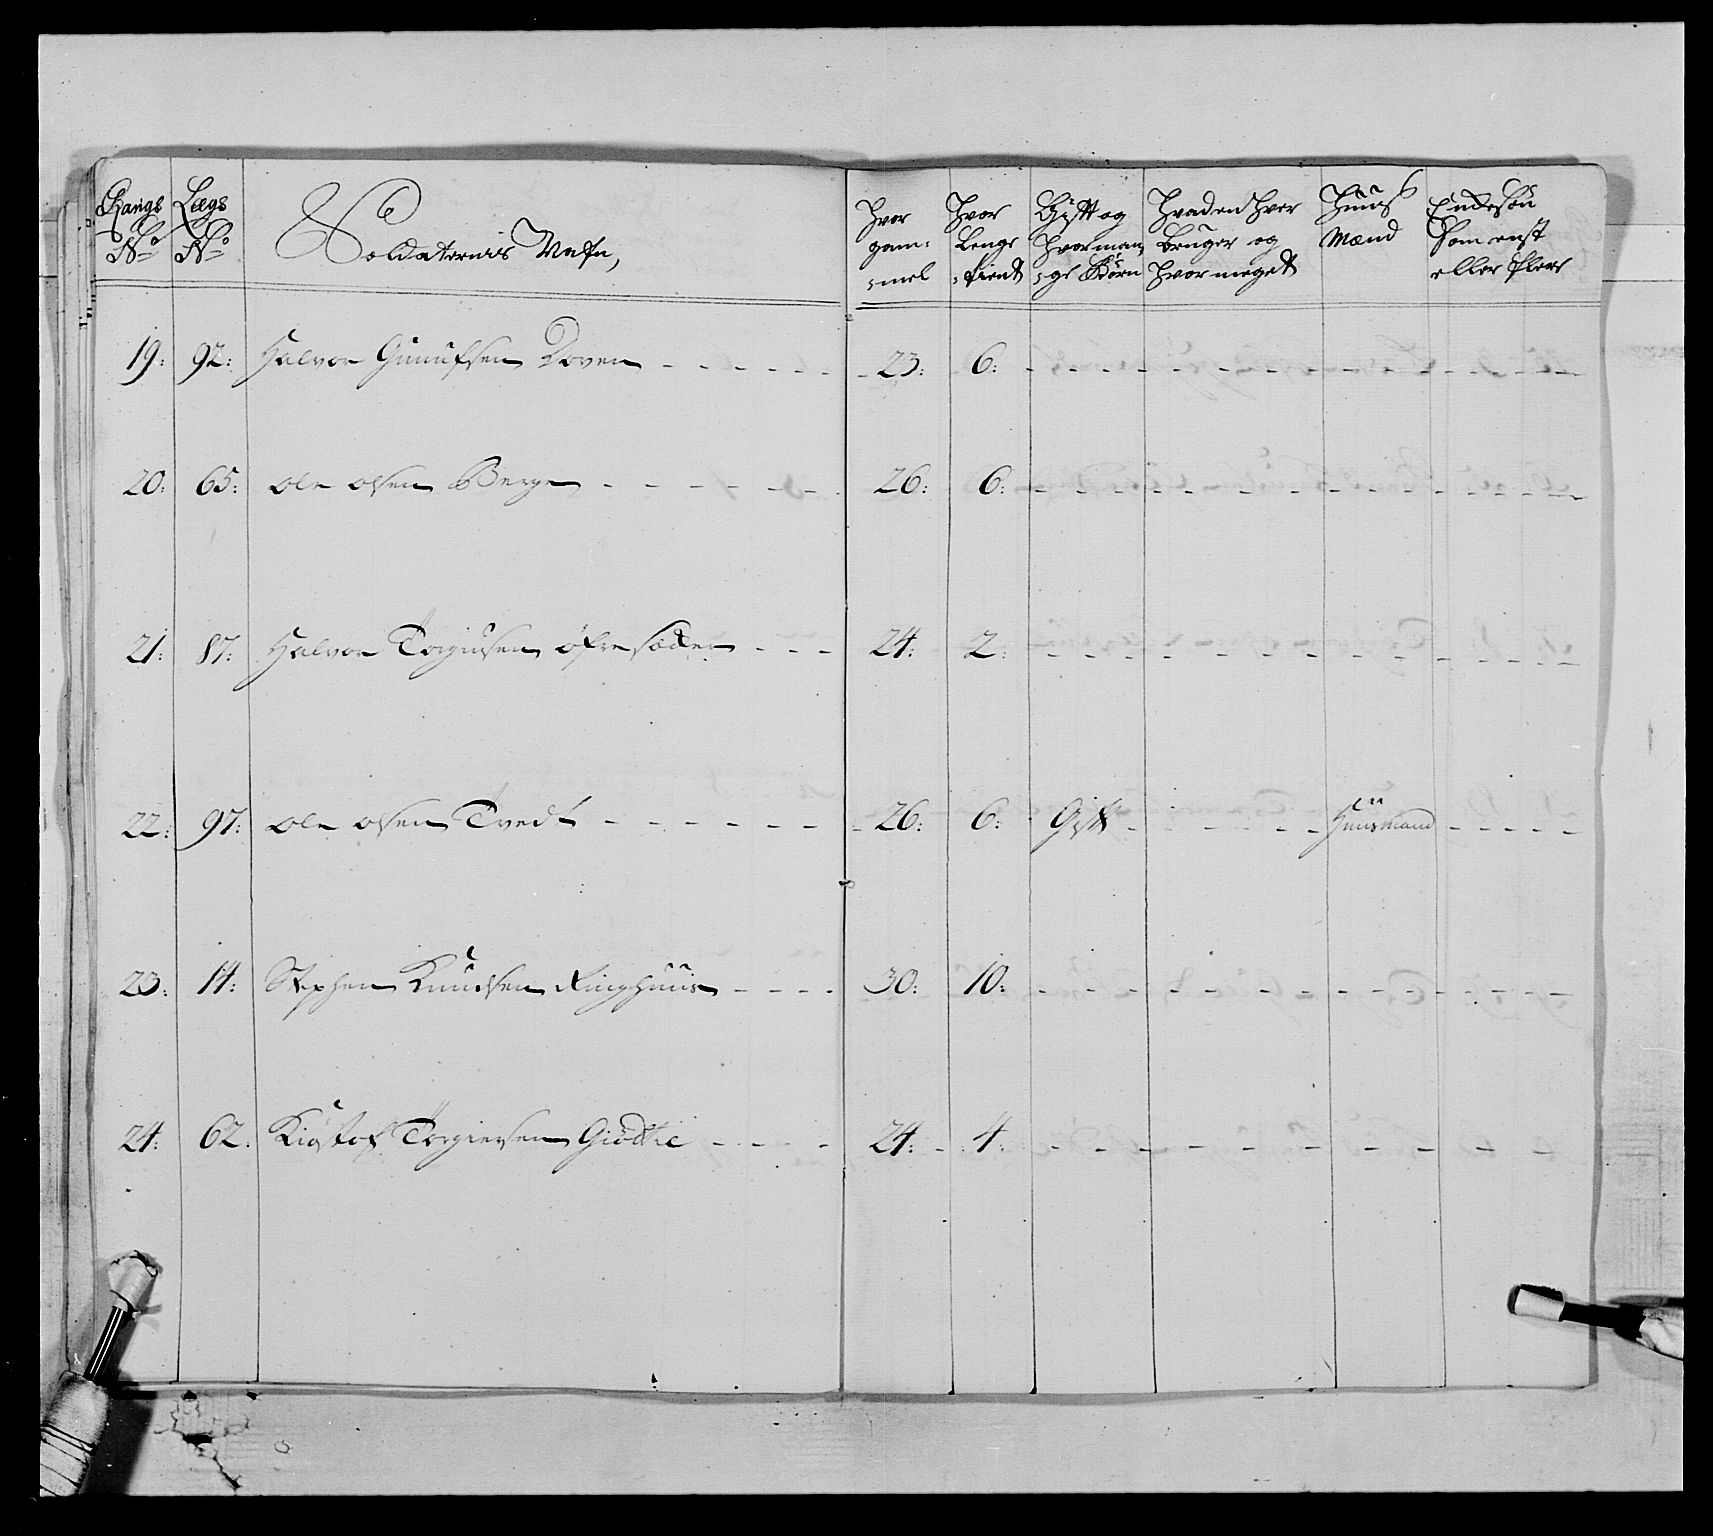 Rangs No | Lægs No | Soldaternis Nafn, | Hvor gam=mel | Hvor Lenge tient | Gift og hvor man=ge Børn | Hvad en hver bruger og hvor meget | Huus Mænd | Endesøn som enst eller flere
19: 92: Halvor Gunufsen Doven - - - - - - 23: 6: - - - - - - - - - - -
20: 65: Ole Olsen Berge - - - - - - 26: 6: - - - - - - - - - - -
21: 87: Halvor Torgiusen Øfresætter - - - 24: 2: - - - - - - - - - - -
22: 97: Ole Olsen Tvedt - - - - - - 26: 6: Gift - - - - - Huusmand - - - - -
23: 14: Stephen Knudsen Ringhuus - - - - 30: 10: - - - - - - - - - - -
24: 62: Kistof Torgiersen Giøttie - - - - 24: 4: - - - - - - - - - -